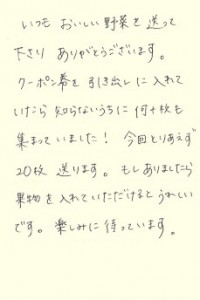 いつも おいしい野菜を送って
下さり ありがとうございます。
クーポン券を引き出しに入れて
いたら 知らないうちに何十枚も
集まっていました! 今回とりあえず
20枚 送ります。もしありましたら
果物を入れていただけるとうれしい
です。楽しみに待っています。